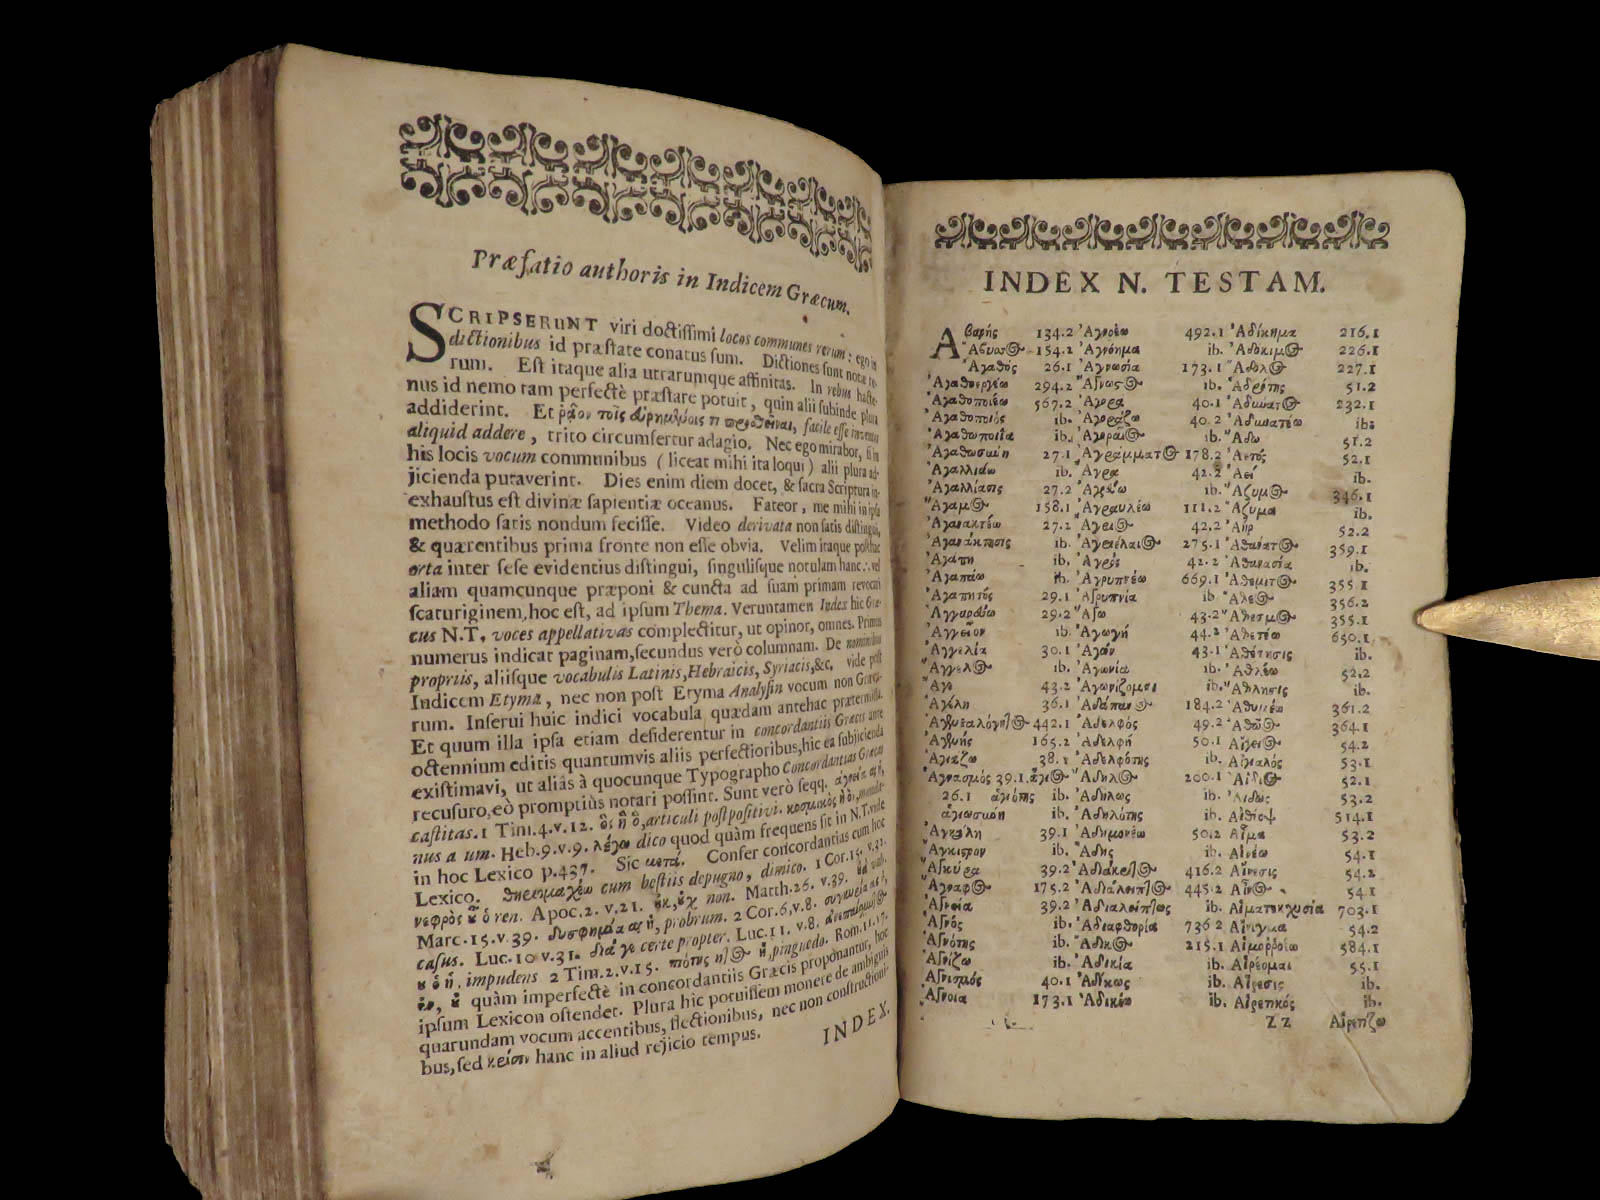 Præfatio authoris in Indicem Græcum.
SCRIPSERUNT viri doctissimi locos communes rerum: ego in
dictionibus id præstare conatus sum. Dictiones sunt notæ re-
rum. Est itaque alia utrarumque affinitas. In rebus hacte-
nus id nemo tam perfectè præstare potuit, quin alii subinde plura
addiderint. Et facile esse inventis
aliquid addere, trito circumfertur adagio. Nec ego mirabor, si in
his locis vocum communibus (liceat mihi ita loqui) alii plura ad-
jicienda putaverint. Dies enim diem docet, & sacra Scriptura in-
exhaustus est divinæ sapientiæ oceanus. Fateor, me mihi in ipsa
methodo satis nondum fecisse. Video derivata non satis distingui,
& quærentibus prima fronte non esse obvia. Velim itaque posthac
orta inter sese evidentius distingui, singulisque notulam hanc ∴ vel
aliam quamcunque præponi & cuncta ad suam primam revocari
scaturiginem, hoc est, ad ipsum Thema. Veruntamen Index hic Græ-
cus N.T. voces appellativas complectitur, ut opinor, omnes. Primus
numerus indicat paginam, secundus verò columnam. De nominibus
propriis, aliisque vocabulis Latinis, Hebraicis, Syriacis, &c, vide post
Indicem Etyma, nec non post Etyma Analysin vocum non Græca-
rum. Inserui huic indici vocabula quædam antehac prætermissa.
Et quum illa ipsa etiam desiderentur in concordantiis Græcis ante
octennium editis quantumvis aliis perfectioribus, hic ea subjicienda
existimavi, ut aliàs à quocunque Typographo Concordantias Græcas
recusuro, eò promptiùs notari possint. Sunt verò seqq. ἁγνεία
castitas. 1 Tim.4.v.12. ὃς ἣ ὃ, articuli postpositivi. κοσμικὸς munda-
nus a um. Heb.9.v.9. λέγω dico quod quàm frequens sit in N.T. vide
in hoc Lexico p.437. Sic μετά. Confer concordantias cum hoc
Lexico. θηριομαχέω cum bestiis depugno, dimico. 1 Cor.15. v.32.
νεφρὸς ὁ ren. Apoc.2. v.23. non. Matth.26. v.39.
Marc.15.v.39. δυσφημία probrum. 2 Cor.6,v.8. συγκυρία
casus. Luc.10 v.31. διά γε certe propter. Luc.11. v.8.
impudens 2 Tim.2.v.15. πιότης pinguedo. Rom.11.17.
quàm imperfectè in concordantiis Græcis proponantur, hoc
ipsum Lexicon ostendet. Plura hic potuissem monere de ambiguis
quarundam vocum accentibus, flectionibus, nec non constructioni-
bus, sed hanc in aliud rejicio tempus.
INDEX.
INDEX N. TESTAM.
Αβαρής 134.2
Ἄβυσσος 154.2
Ἀγαθός 26.1
Ἀγαθοεργέω 294.2
Ἀγαθοποιέω 567.2
Ἀγαθοποιός ib.
Ἀγαθοποιΐα ib.
Ἀγαθωσύνη 27.1
Ἀγαλλιάω ib.
Ἀγαλλίασις 27.2
Ἄγαμος 158.1
Ἀγανακτέω 27.2
Ἀγανάκτησις ib.
Ἀγάπη ib.
Ἀγαπάω ib.
Ἀγαπητός 29.1
Ἀγγαρεύω 29.2
Ἀγγεῖον ib.
Ἀγγελία 30.1
Ἄγγελος ib.
Ἄγε 43.2
Ἀγέλη 36.1
Ἀγενεαλόγητος 442.1
Ἀγενής 165.2
Ἁγιάζω 38.1
Ἁγιασμός 39.1. ἅγιος
26.1 ἁγιότης ib.
ἁγιωσύνη ib.
Ἀγκάλη 39.1
Ἄγκιστρον ib.
Ἄγκυρα 39.2
Ἄγναφος 175.2
Ἁγνεία 39.2
Ἁγνός ib.
Ἁγνότης ib.
Ἁγνίζω ib.
Ἁγνισμός 40.1
Ἄγνοια 173.1
Ἀγνοέω 492.1
Ἀγνόημα ib.
Ἀγνωσία 173.1
Ἄγνωστος ib.
Ἀγορά 40.1
Ἀγοράζω 40.2
Ἀγοραῖος ib.
Ἀγράμματος 178.2
Ἄγρα 42.2
Ἀγρεύω ib.
Ἀγραυλέω 111.2
Ἄγριος 42.2
Ἀγριέλαιος 275.1
Ἀγρός 42.2
Ἀγρυπνέω 669.1
Ἀγρυπνία ib.
Ἄγω 43.2
Ἀγωγή 44.2
Ἀγών 43.1
Ἀγωνία ib.
Ἀγωνίζομαι ib.
Ἀδάπανος 184.2
Ἀδελφός 49.2
Ἀδελφή 50.1
Ἀδελφότης ib.
Ἄδηλος 200.1
Ἀδήλως ib.
Ἀδηλότης ib.
Ἀδημονέω 50.2
Ἅδης ib.
Ἀδιάκριτος 416.2
Ἀδιάλειπτος 445.2
Ἀδιαλείπτως ib.
Ἀδιαφθορία 736 2
Ἄδικος 215.1
Ἀδικία ib.
Ἀδίκως ib.
Ἀδικέω ib.
Ἀδίκημα 216.1
Ἀδόκιμος 226.1
Ἄδολος 227.1
Ἁδρότης 51.2
Ἀδύνατος 232.1
Ἀδυνατέω ib.
Ἄδω 51.2
Ἀετός 52.1
Ἀεί ib.
Ἄζυμος 346.1
Ἄζυμα ib.
Ἀήρ 52.2
Ἀθάνατος 359.1
Ἀθανασία ib.
Ἀθέμιτος 355.1
Ἄθεος 356.2
Ἄθεσμος 355.1
Ἀθετέω 650.1
Ἀθέτησις ib.
Ἀθλέω 52.2
Ἄθλησις ib.
Ἀθυμέω 361.2
Ἀθῶος 364.1
Αἴγειος 54.2
Αἰγιαλός 53.1
Ἀΐδιος 52.1
Αἰδώς 53.2
Αἰθίοψ 514.1
Αἷμα 53.2
Αἰνέω 54.1
Αἴνεσις 54.2
Αἶνος 54.1
Αἱματεκχυσία 703.1
Αἴνιγμα 54.2
Αἱμορροέω 584.1
Αἱρέομαι 55.1
Αἵρεσις ib.
Αἱρετικός ib.
Zz Αἱρετίζω